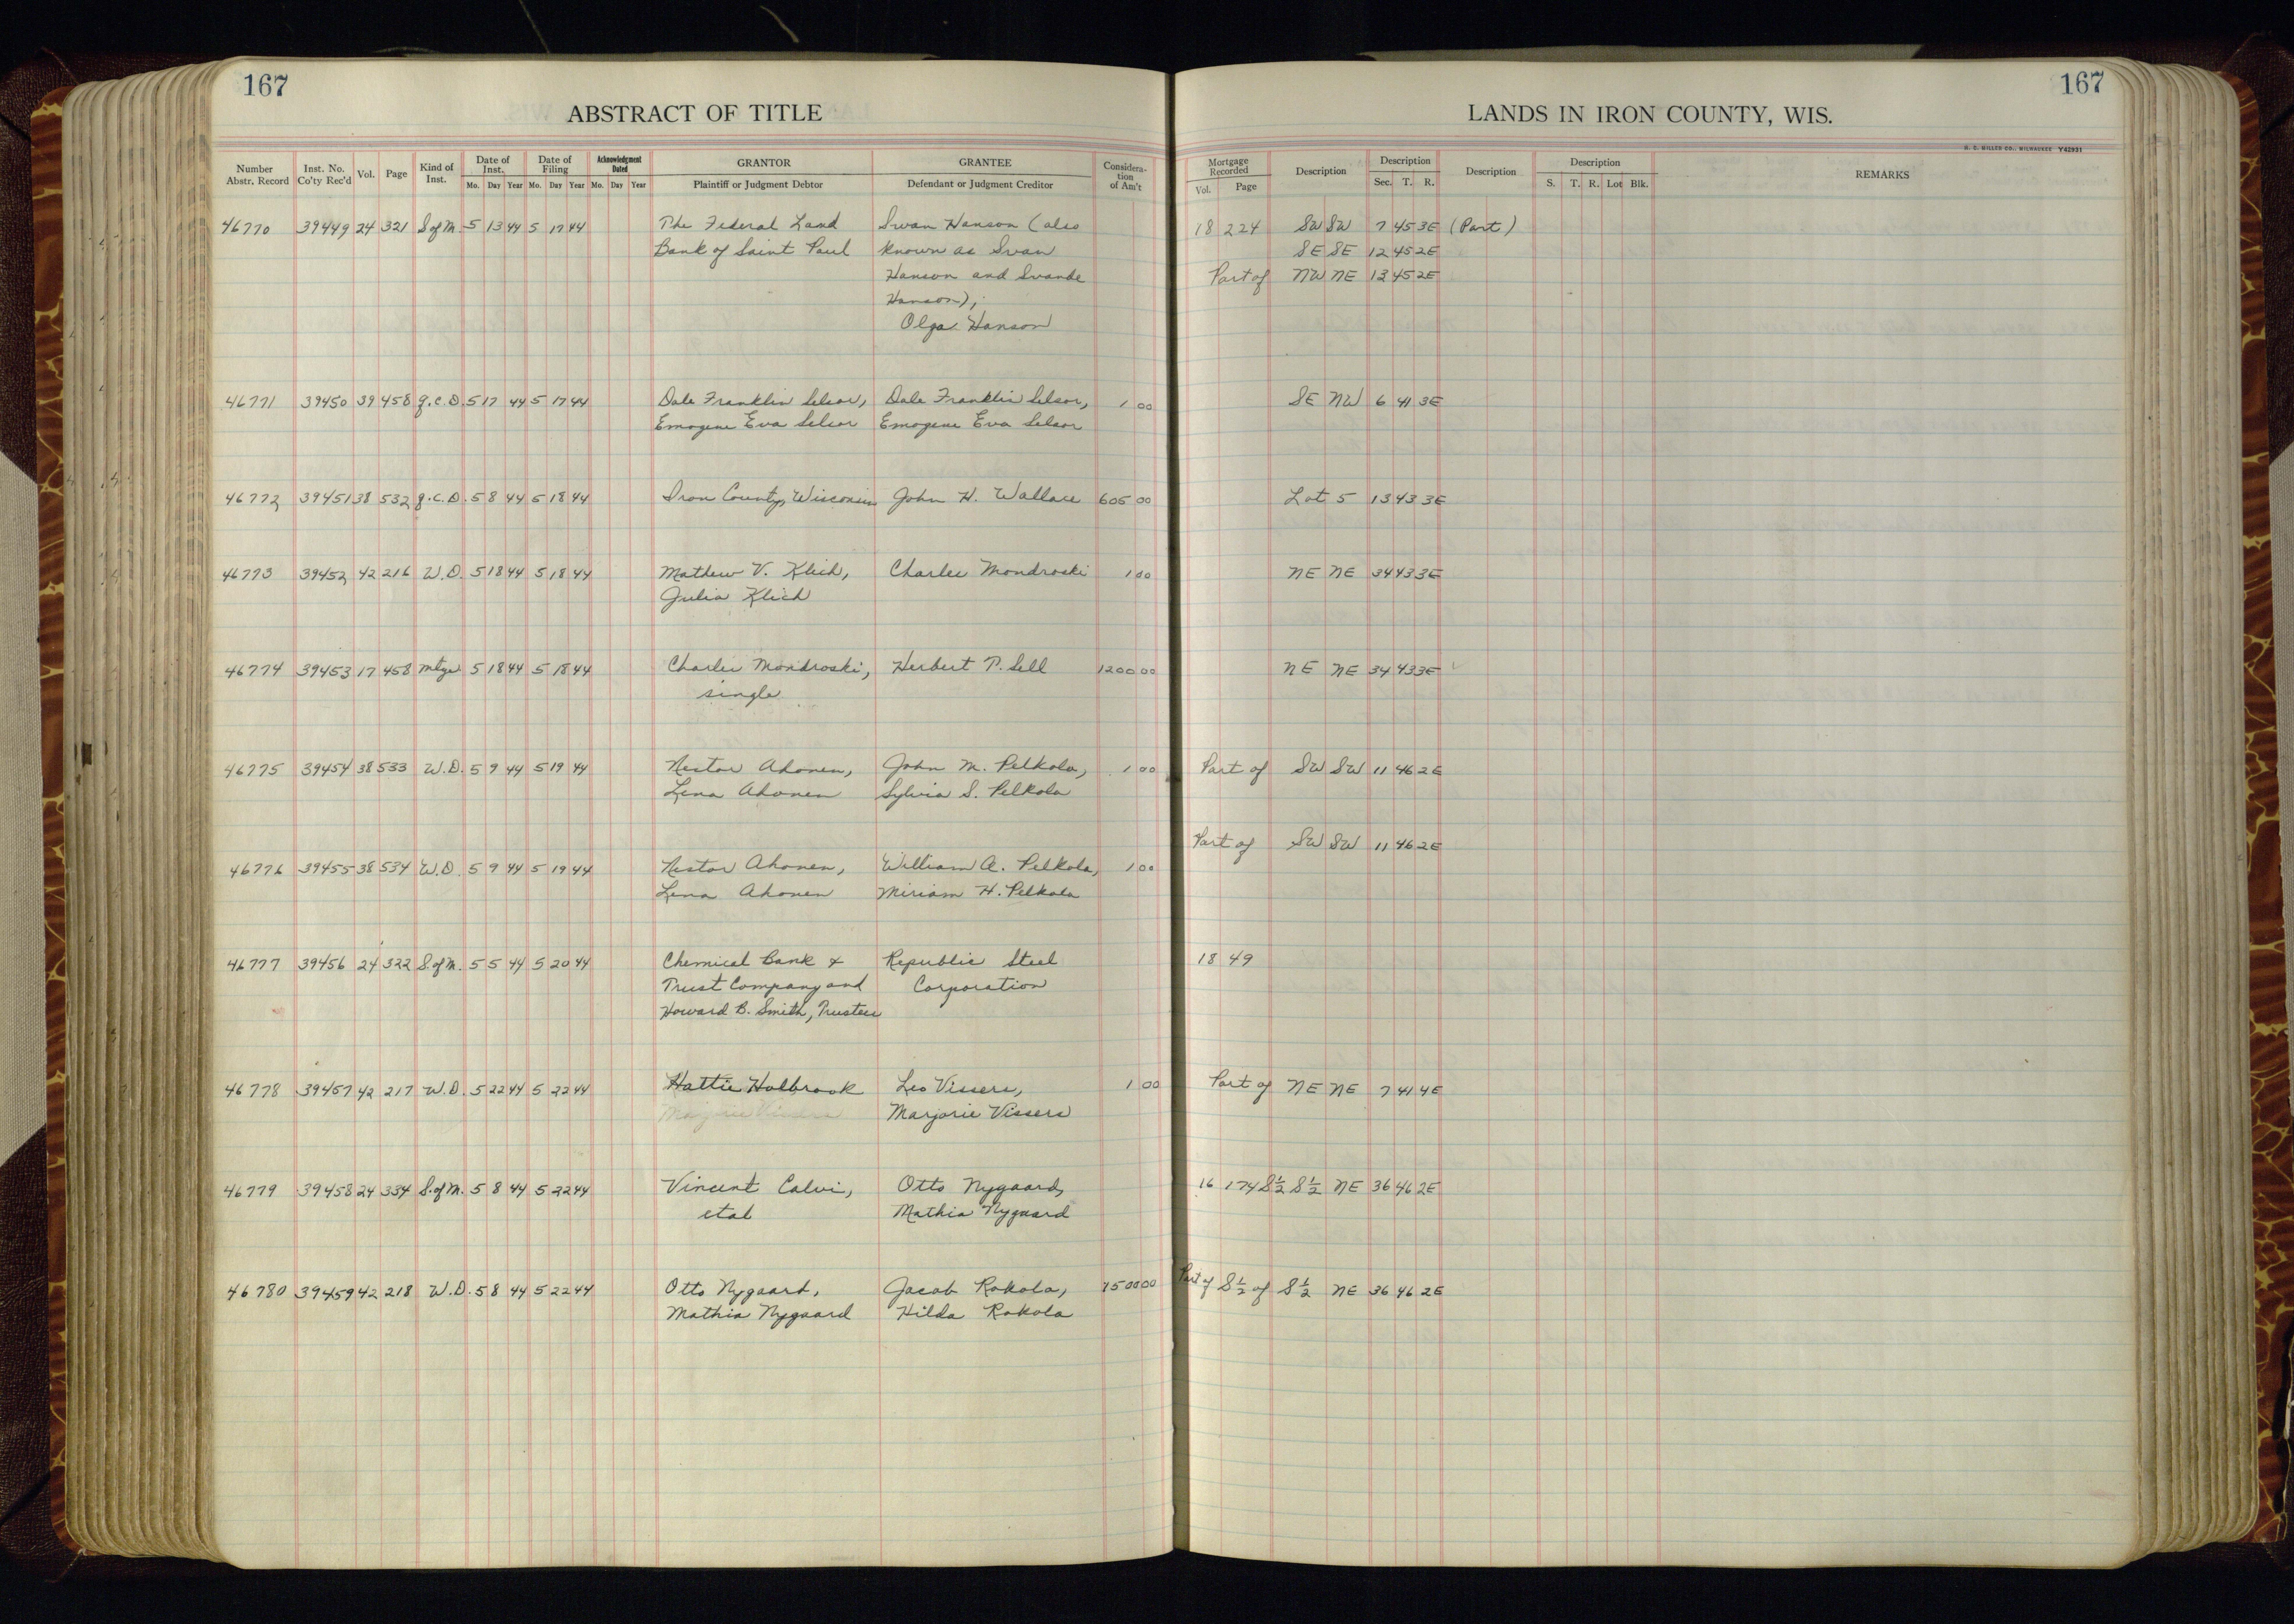 167
167
ABSTRACT OF TITLE
LANDS IN IRON COUNTY, WIS.
H. C. MILLER CO., MILWAUKEE Y42931
Number Abstr. Record Inst. No. Co'ty Rec'd Vol. Page Kind of Inst. Date of Inst. Mo. Day Year Date of Filing Mo. Day Year Acknowledgment Dated Mo. Day Year GRANTOR Plaintiff or Judgment Debtor GRANTEE Defendant or Judgment Creditor Considera-tion of Am't Mortgage Recorded Vol. Page Description Description Sec. T. R. Description Description S. T. R. Lot Blk. REMARKS
46770 39449 24 321 S of M. 5 13 44 5 17 44 The Federal Land Swan Hanson (also 18 224 SW SW 7 45 3E (Part)
Bank of Saint Paul known as Svan SE SE 12 45 2E
Hanson and Svande Part of NW NE 13 45 2E
Hanson);
Olga Hanson
46771 39450 39 458 Q.C.D. 5 17 44 5 17 44 Dale Franklin Selsor, Dale Franklin Selsor, 1 00 SE NW 6 41 3E
Emogene Eva Selsor Emogene Eva Selsor
46772 39451 38 532 Q.C.D. 5 8 44 5 18 44 Iron County, Wisconsin John H. Wallace 605 00 Lot 5 13 43 3E
46773 39452 42 216 W.D. 5 18 44 5 18 44 Mathew V. Klich, Charles Mondroski 1 00 NE NE 34 43 3E
Julia Klich
46774 39453 17 458 Mtge 5 18 44 5 18 44 Charles Mondroski, Herbert P. Sell 1200 00 NE NE 34 43 3E
single
46775 39454 38 533 W.D. 5 9 44 5 19 44 Nestor Ahonen, John M. Pelkola, 1 00 Part of SW SW 11 46 2E
Lena Ahonen Sylvia S. Pelkola
Part of SW SW 11 46 2E
46776 39455 38 534 W.D. 5 9 44 5 19 44 Nestor Ahonen, William A. Pelkola, 1 00
Lena Ahonen Miriam H. Pelkola
46777 39456 24 322 S. of M. 5 5 44 5 20 44 Chemical Bank & Republic Steel 18 49
Trust Company and Corporation
Howard B. Smith, Trustees
46778 39457 42 217 W.D. 5 22 44 5 22 44 Hattie Holbrook Leo Vissers, 1 00 Part of NE NE 7 41 4E
Marjorie Vissers Marjorie Vissers
46779 39458 24 334 S. of M. 5 8 44 5 22 44 Vincent Calvi, Otto Nygaard, 16 174 S½ S½ NE 36 46 2E
etal Mathia Nygaard
46780 39459 42 218 W.D. 5 8 44 5 22 44 Otto Nygaard, Jacob Rokola, 1500 00 Part of S½ of S½ NE 36 46 2E
Mathia Nygaard Hilda Rokola